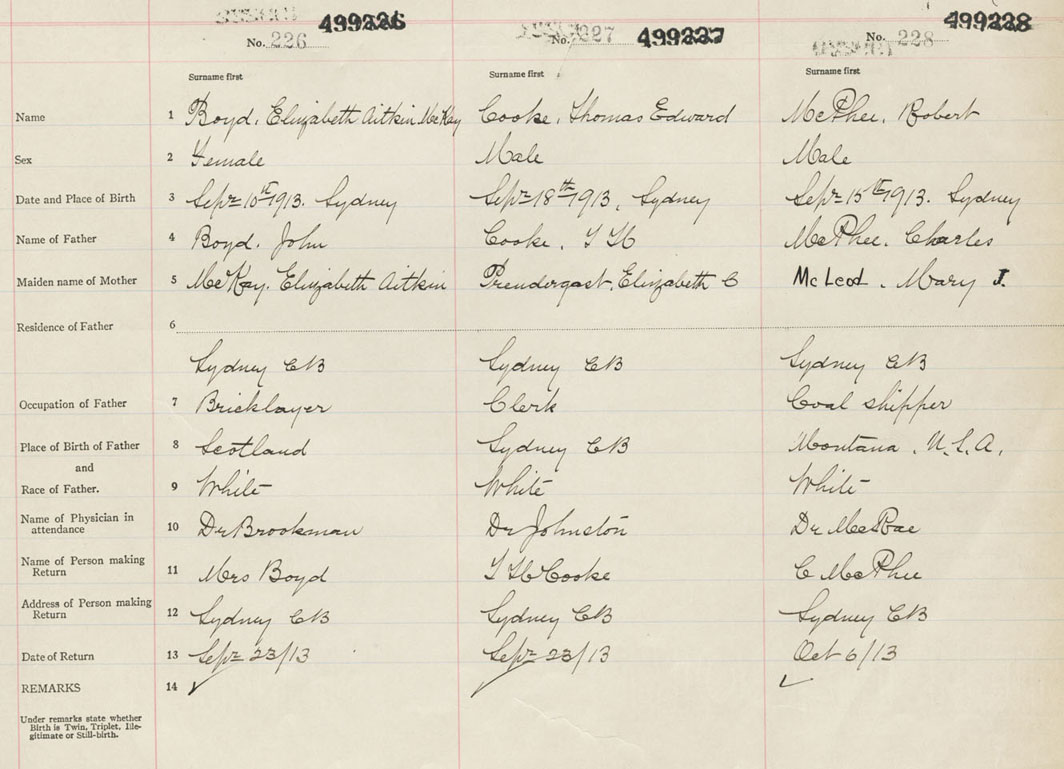 499226 499227 499228
No. 226 No. 227 No. 228
Surname first Surname first Surname first
Name 1 Boyd, Elizabeth Aitkin McKay Cooke, Thomas Edward McPhee, Robert
Sex 2 Female Male Male
Date and Place of Birth 3 Sept 10th 1913. Sydney Sept 18th 1913, Sydney Sept 15th 1913. Sydney
Name of Father 4 Boyd. John Cooke, T H McPhee. Charles
Maiden name of Mother 5 McKay. Elizabeth Aitkin Prendergast, Elizabeth C McLeod, Mary J.
Residence of Father 6
Sydney CB Sydney CB Sydney CB
Occupation of Father 7 Bricklayer Clerk Coal shipper
Place of Birth of Father 8 Scotland Sydney CB Montana, U.S.A.
and
Race of Father. 9 White White White
Name of Physician in
attendance 10 Dr Brookman Dr Johnston Dr McRae
Name of Person making
Return 11 Mrs Boyd T H Cooke C McPhee
Address of Person making
Return 12 Sydney CB Sydney CB Sydney CB
Date of Return 13 Sept 23/13 Sept 23/13 Oct 6/13
REMARKS 14
Under remarks state whether
Birth is Twin, Triplet, Ille-
gitimate or Still-birth.